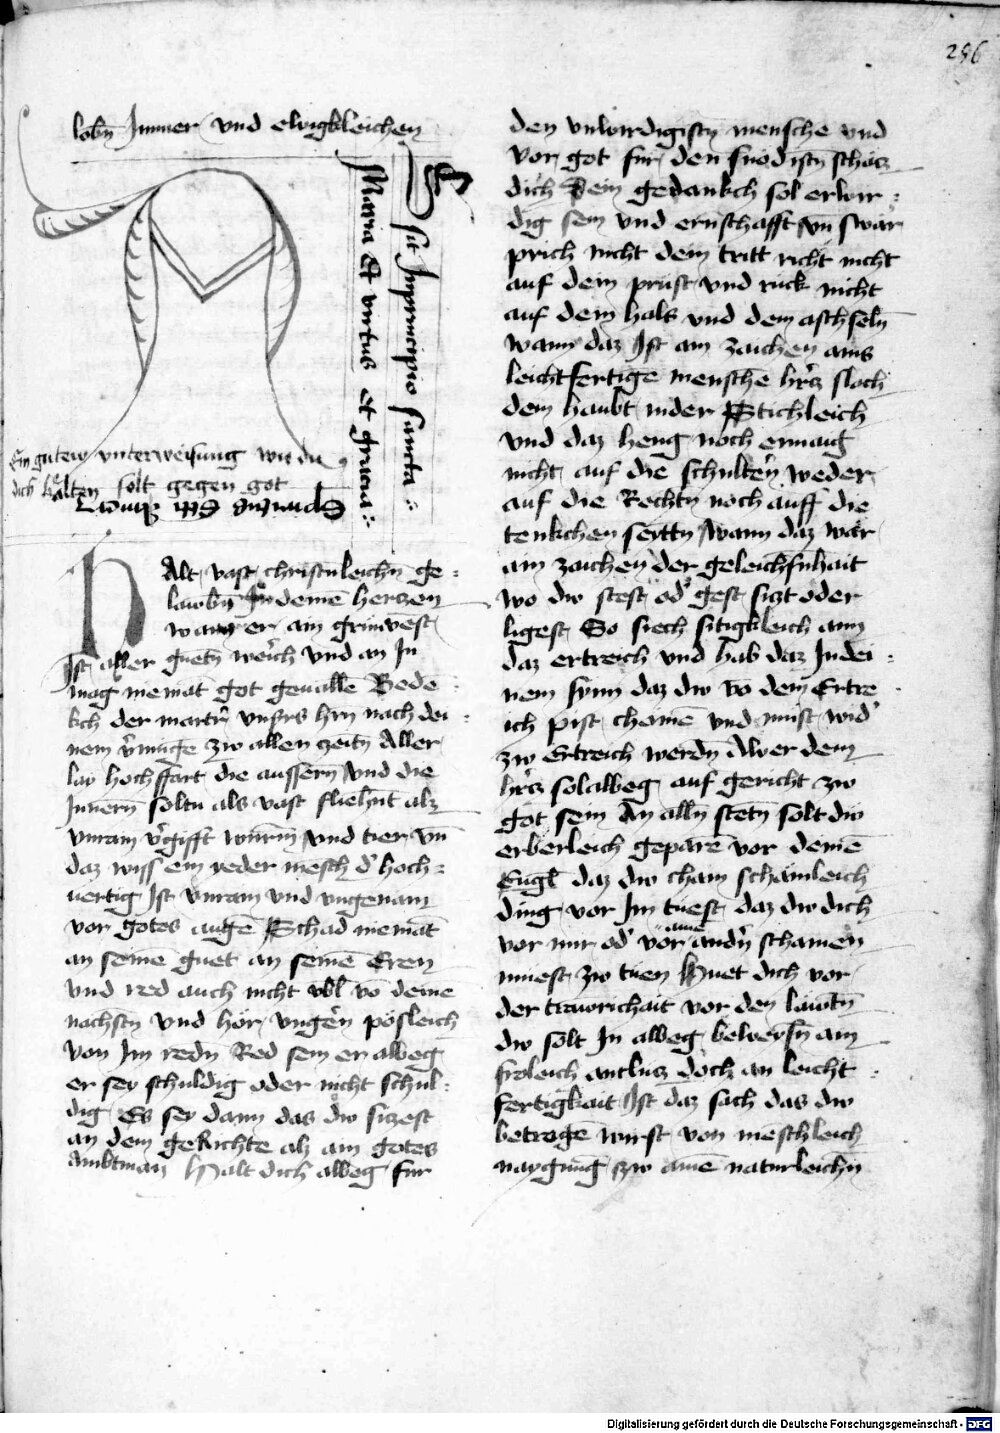 256
lobn Immer vnd ewigkleichen
Assit Inprincipio sancta
Maria Et virtus et gracia
Ein gutew vnterweisung wie du
dich halten solt gegen got
Halt vast christenleichn ge=
lawbn In deinē herczen
wann er ain grūnvest
Ist aller guetn werch vnd an In
mag niemāt got geuallē Bede=
kch der martr vnsrs hrn nach dei=
nem vmūgē zw allen zeitn Aller
lay hochffart die aussern vnd die
Innern soltu als vast fliehnt als
vnram vgifft wūrm vnd tier vn̄
daz wiss ein yeder mesch d' hoch=
uertig Ist vnram vnd vngenam
vor gotes augē Schad niemāt
an seinē guet an seinē Eren
vnd red auch nicht vbl vō deinē
nachstn vnd hör vngern pösleich
von Im redn Red sein er albeg
er sey schuldig oder nicht schul=
dig Es sey dann das dw siczest
an dem geRichte als ain gotes
Ambtman Halt dich albeg fur
den vnwirdigistn mensche vnd
vor got fur den snödistn
dich Dein gedankch sol erwir=
dig sein vnd ernschafft vn̄ swär
prich nicht dein tritt richt nicht
auf dein prust vnd ruck nicht
auf dein hals vnd dein achseln
wann daz Ist ain zaichen ains
leichtfertigē menschē
dein haubt nider Stichleich
vnd daz heng noch ernaig
nicht auf die schultern weder
auf die Rechtn noch auff die
tenkchen seittn wann daz wär
ain zaichen der geleichsnhait
wo dw stest od' gest siczt oder
ligest So siech sitigkleich ann
daz ertreich vnd hab daz In dei=
nem synn daz dw vō dem Ertre
ich pist chömē vnd must wid'
zw Ertreich werdn Aber dein
hercz sol albeg auf gericht zw
got sein An alln stetn solt dw
erberleich gepārē vor deinē
Engl daz dw chain schämleich
ding vor Im tuest daz dw dich
vor mir od' vor ainē andn schamen
muest zw tuen Huet dich vor
der trawrichait vor den lawtn
dw solt In albeg beweysn ain
fröleich antlucz doch an leicht=
fertigkait Ist daz sach das dw
betrogē wirst von meschleich
naygūng zw ainē naturleichn
Digitalisierung gefördert durch die Deutsche Forschungsgemeinschaft - DFG